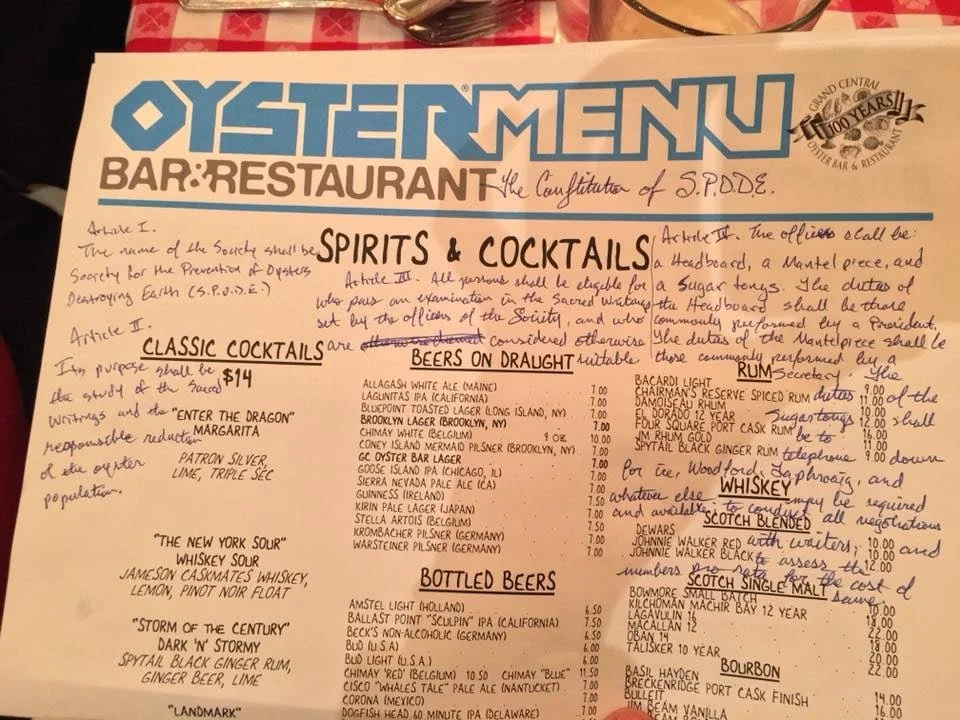 OYSTER® MENU
BAR & RESTAURANT
GRAND CENTRAL
100 YEARS!!
OYSTER BAR & RESTAURANT
The Constitution of S.P.O.D.E.
Article I.
The name of the Society shall be
Society for the Prevention of Oysters
Destroying Earth (S.P.O.D.E.)
Article II.
Its purpose shall be
the study of the Sacred
Writings and the
responsible reduction
of the oyster
population.
SPIRITS & COCKTAILS
Article III. All persons shall be eligible for
who pass an examination in the Sacred Writings
set by the officers of the Society, and who
are considered otherwise
suitable
Article IV. The officers shall be:
a Headboard, a Mantelpiece, and
a Sugar tongs. The duties of
the Headboard shall be those
commonly performed by a President.
The duties of the Mantelpiece shall be
those commonly performed by a
Secretary. The
duties of the
Sugartongs shall
be to
telephone down
for ice, Woodford, Laphroaig, and
whatever else may be required
and available; to conduct all negotiations
with waiters; and
to assess the
members pro rata for the cost of
same.
CLASSIC COCKTAILS
$14
"ENTER THE DRAGON"
MARGARITA
PATRON SILVER,
LIME, TRIPLE SEC
"THE NEW YORK SOUR"
WHISKEY SOUR
JAMESON CASKMATES WHISKEY,
LEMON, PINOT NOIR FLOAT
"STORM OF THE CENTURY"
DARK 'N' STORMY
SPYTAIL BLACK GINGER RUM,
GINGER BEER, LIME
"LANDMARK"
BEERS ON DRAUGHT
ALLAGASH WHITE ALE (MAINE) 7.00
LAGUNITAS IPA (CALIFORNIA) 7.00
BLUEPOINT TOASTED LAGER (LONG ISLAND, NY) 7.00
BROOKLYN LAGER (BROOKLYN, NY) 7.00
CHIMAY WHITE (BELGIUM) 9 OZ 10.00
CONEY ISLAND MERMAID PILSNER (BROOKLYN, NY) 7.00
GC OYSTER BAR LAGER 7.00
GOOSE ISLAND IPA (CHICAGO, IL) 7.00
SIERRA NEVADA PALE ALE (CA) 7.00
GUINNESS (IRELAND) 7.50
KIRIN PALE LAGER (JAPAN) 7.00
STELLA ARTOIS (BELGIUM) 7.50
KROMBACHER PILSNER (GERMANY) 7.00
WARSTEINER PILSNER (GERMANY) 7.00
BOTTLED BEERS
AMSTEL LIGHT (HOLLAND) 6.50
BALLAST POINT "SCULPIN" IPA (CALIFORNIA) 7.50
BECK'S NON-ALCOHOLIC (GERMANY) 6.50
BUD (U.S.A) 6.00
BUD LIGHT (U.S.A.) 6.00
CHIMAY 'RED' (BELGIUM) 10.50 CHIMAY "BLUE" 11.50
CISCO "WHALES TALE" PALE ALE (NANTUCKET) 7.00
CORONA (MEXICO) 7.00
DOGFISH HEAD 60 MINUTE IPA (DELAWARE) 7.00
RUM
BACARDI LIGHT 9.00
CHAIRMAN'S RESERVE SPICED RUM 11.00
DAMOISEAU RHUM 10.00
EL DORADO 12 YEAR 12.00
FOUR SQUARE PORT CASK RUM 16.00
JM RHUM GOLD 11.00
SPYTAIL BLACK GINGER RUM 9.00
WHISKEY
SCOTCH BLENDED
DEWARS 10.00
JOHNNIE WALKER RED 10.00
JOHNNIE WALKER BLACK 12.00
SCOTCH SINGLE MALT
BOWMORE SMALL BATCH 10.00
KILCHOMAN MACHIR BAY 12 YEAR 18.00
LAGAVULIN 16 22.00
MACALLAN 12 18.00
OBAN 14 20.00
TALISKER 10 YEAR 22.00
BOURBON
BASIL HAYDEN 14.00
BRECKENRIDGE PORT CASK FINISH 16.00
BULLEIT
JIM BEAM VANILLA